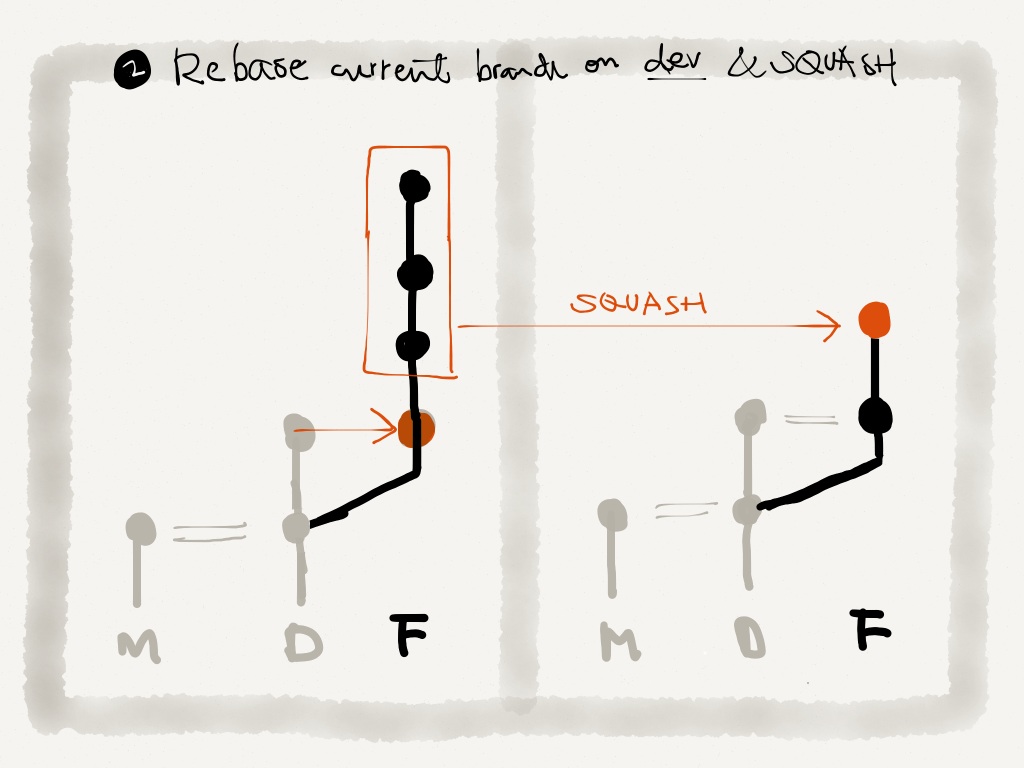 2 Rebase current branch on dev & SQUASH
SQUASH
M D F
M D F